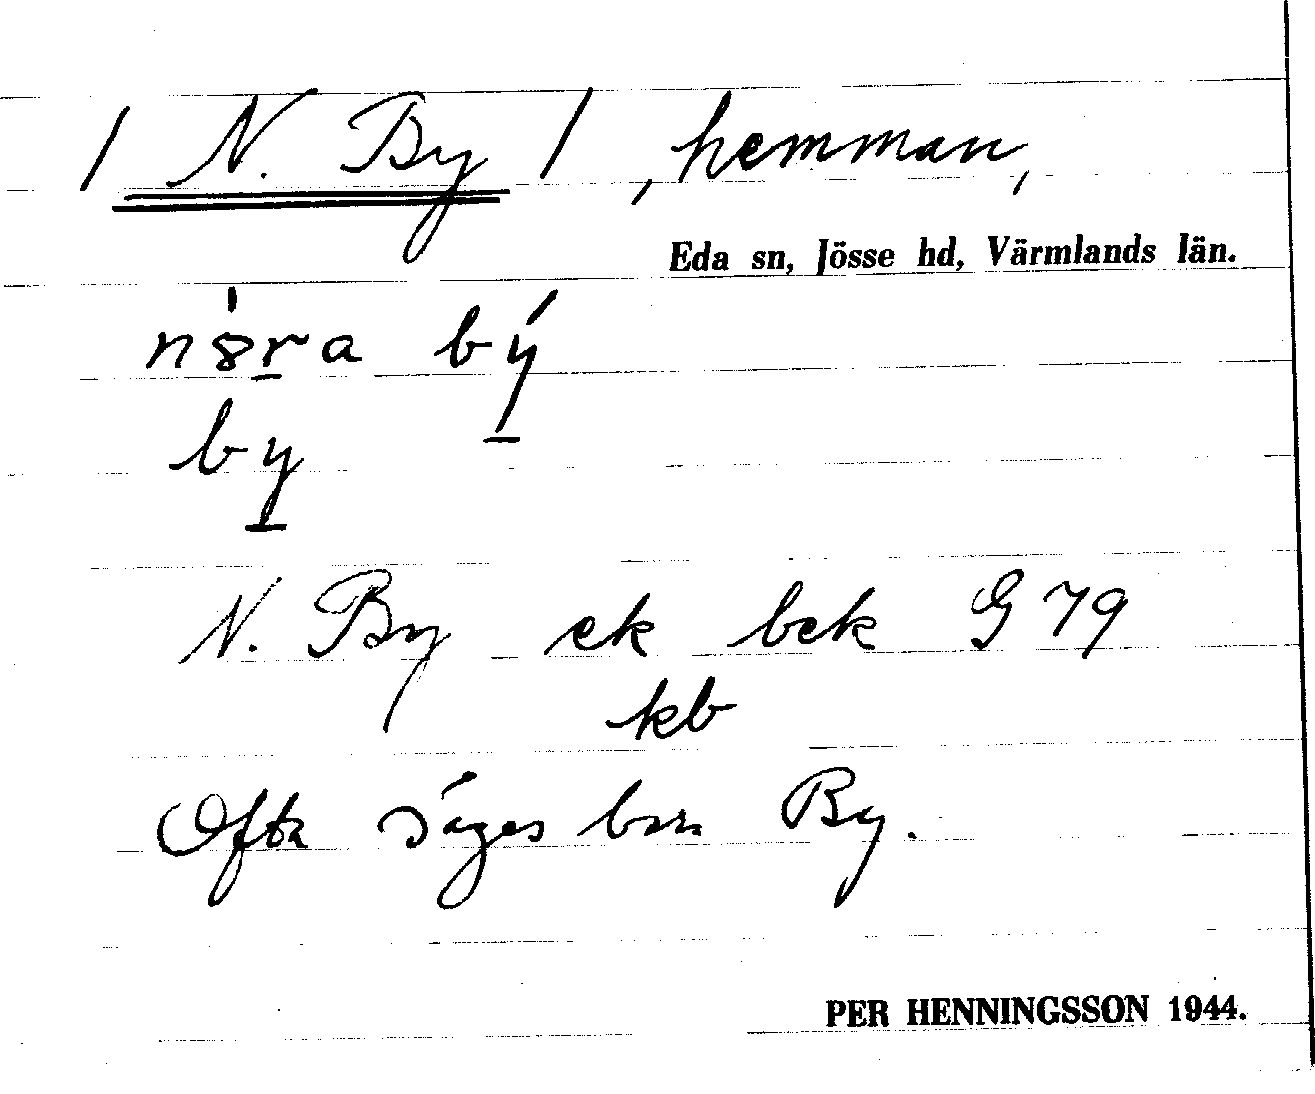 / N. By /, hemman,
Eda sn, Jösse hd, Värmlands län.
nȣ̍ra bý
by
N. By ek bek G 79
kb
Ofta säges bara By.
PER HENNINGSSON 1944.